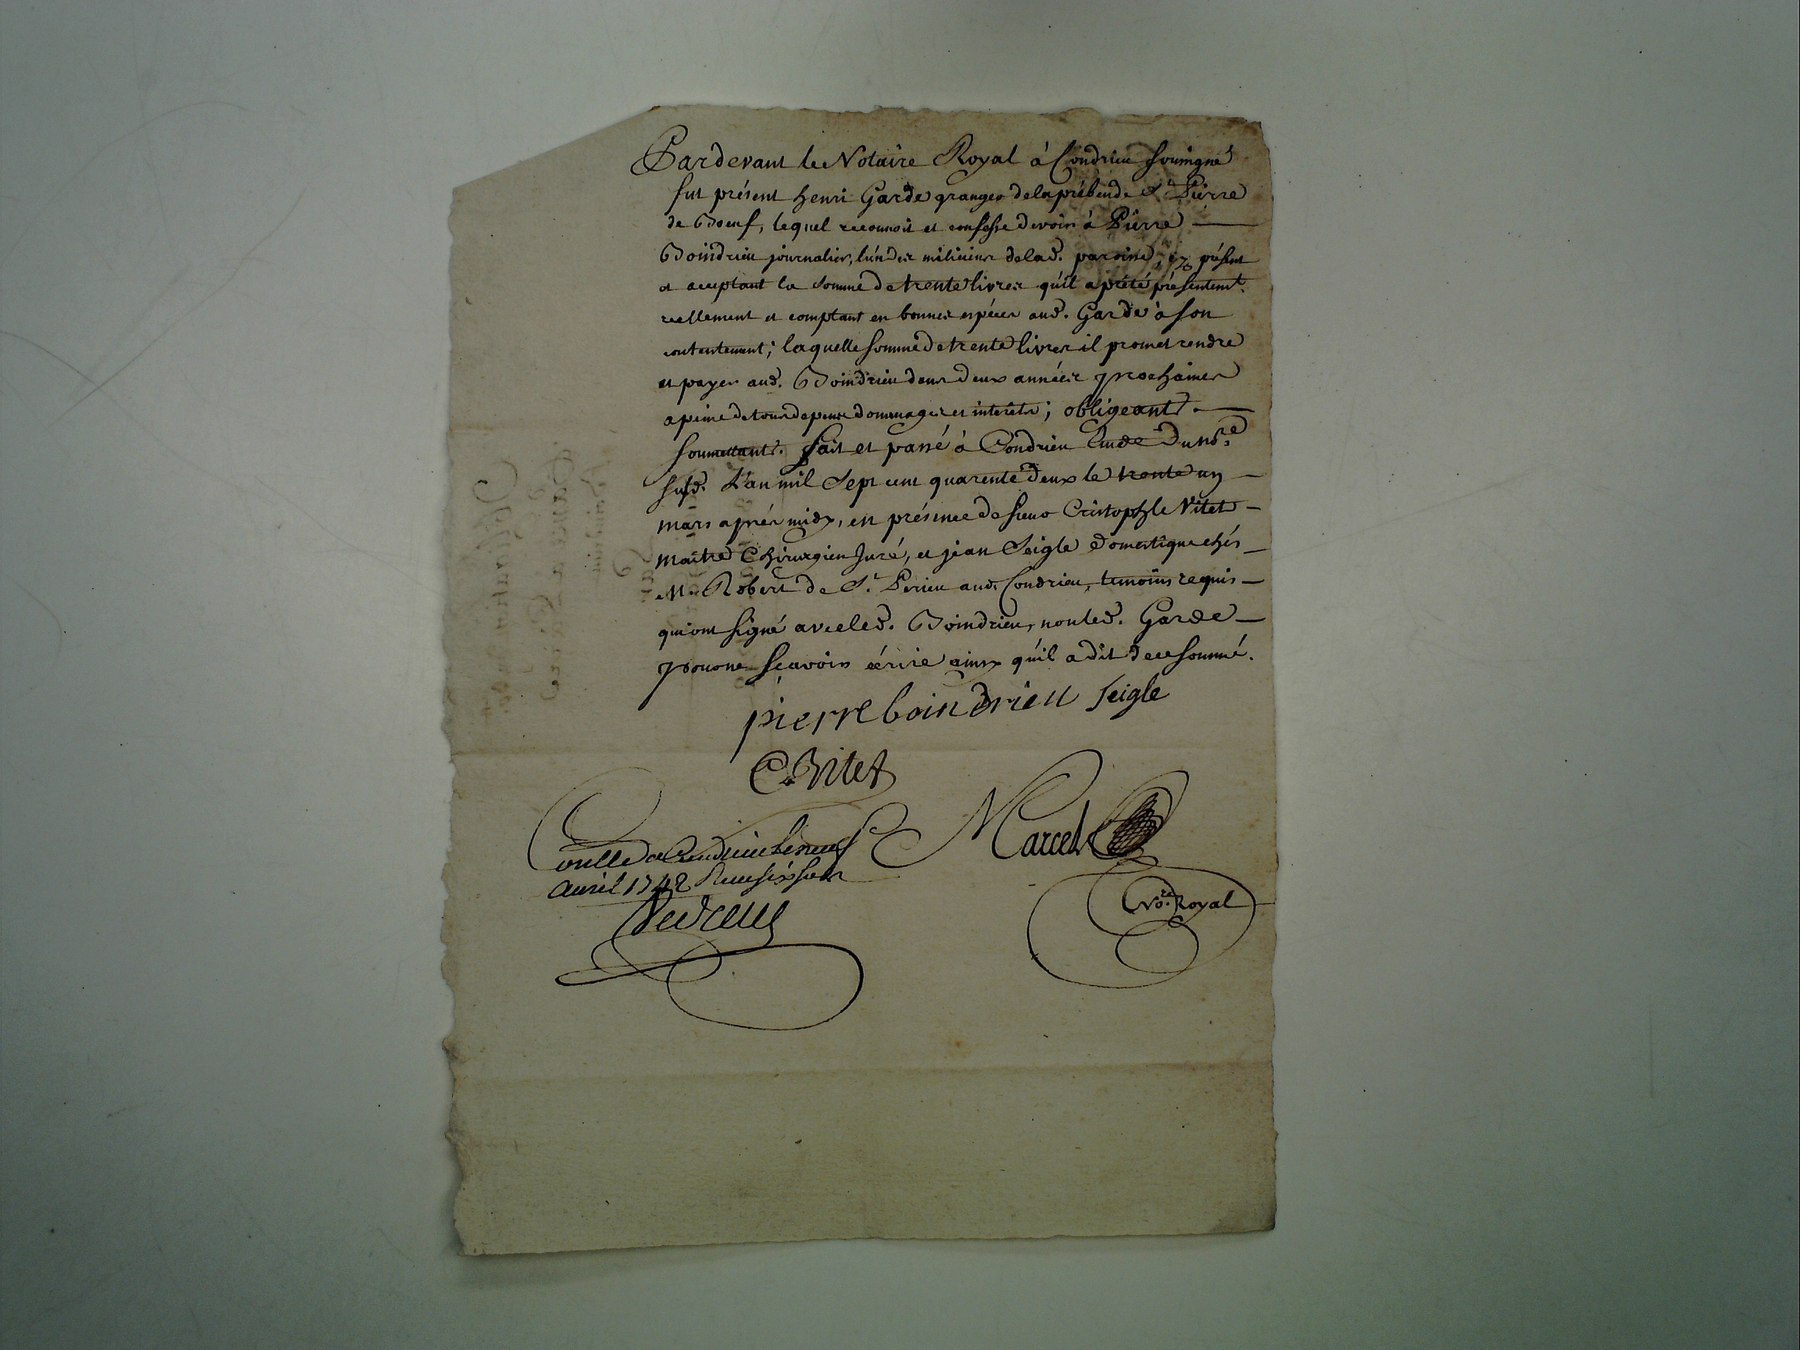 Pardevant le Notaire Royal à Condrieu soussigné
fut présent henri Garde granger dela prébende St Pierre
de Boeuf, lequel reconnoit et confesse devoir à Pierre
Boindrieu journalier, l'un des miliciens delad. paroisse, présent
et acceptant la somme de trente livres qu'il a prété présentemt.
reellement et comptant en bonnes espéces aud. Garde à son
contentement; laquelle somme de trente livres il promet rendre
et payer aud. Boindrieu dans deux années prochaines
a peine de tous depens dommages et interêts; obligeant.
soumettant. fait et passé à Condrieu Etude du nore.
susd. L'an mil sept cent quarente deux le trente un
mars aprés midy, en présence de sieur Cristophle Vitet
maitre Chirurgien Juré, et jean Seigle domestique chés
M. Robert de St. Perieu aud. Condrieu, temoins requis
qui ont signé avec led. Boindrieu, non led. Garde
pour ne scavoir écrire ainsy qu'il a dit de ce sommé.
pierre boindrieu Seigle
C. Vitet
Conllé a Condrieu le neuf
avril 1742 Receu six sols
Marcel
No.re Royal